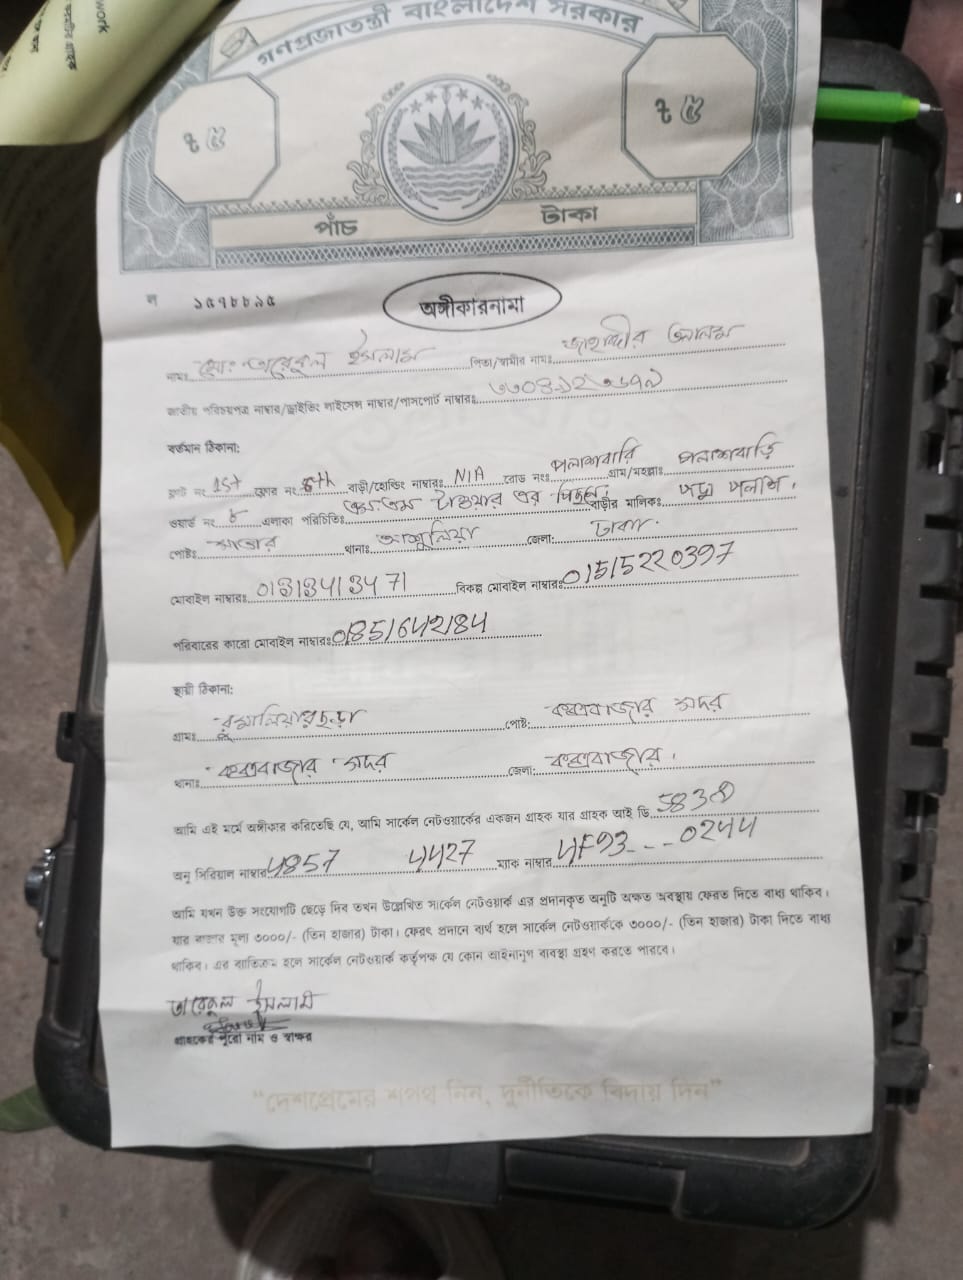 work
গণপ্রজাতন্ত্রী বাংলাদেশ সরকার
৳ ৫ ৳ ৫
পাঁচ টাকা
ল ১৫৭৮৮১৫
অঙ্গীকারনামা
নামঃ মোঃ তারেকুল ইসলাম পিতা/স্বামীর নামঃ জাহাঙ্গীর আলম
জাতীয় পরিচয়পত্র নাম্বার/ড্রাইভিং লাইসেন্স নাম্বার/পাসপোর্ট নাম্বারঃ
বর্তমান ঠিকানা:
ফ্লাট নং 1st ফ্লোর নং 6th বাড়ী/হোল্ডিং নাম্বারঃ N/A রোড নংঃ পলাশবাড়ি গ্রাম/মহল্লাঃ পলাশবাড়ি
ওয়ার্ড নং ৪ এলাকা পরিচিতিঃ টাওয়ার এর পিছনে বাড়ীর মালিকঃ পদ্মা পলাশ।
পোষ্টঃ সাভার থানাঃ আশুলিয়া জেলা: ঢাকা
মোবাইল নাম্বারঃ 01313413471 বিকল্প মোবাইল নাম্বারঃ 01515220397
পরিবারের কারো মোবাইল নাম্বারঃ 01851642184
স্থায়ী ঠিকানা:
গ্রামঃ রুমালিয়ারছড়া পোষ্ট: কক্সবাজার সদর
থানাঃ কক্সবাজার সদর জেলা: কক্সবাজার।
আমি এই মর্মে অঙ্গীকার করিতেছি যে, আমি সার্কেল নেটওয়ার্কের একজন গ্রাহক যার গ্রাহক আই ডি 5838
অনু সিরিয়াল নাম্বার 4857 4427 ম্যাক নাম্বার 4F93---0244
আমি যখন উক্ত সংযোগটি ছেড়ে দিব তখন উল্লেখিত সার্কেল নেটওয়ার্ক এর প্রদানকৃত অনুটি অক্ষত অবস্থায় ফেরত দিতে বাধ্য থাকিব।
যার বাজার মূল্য ৩০০০/- (তিন হাজার) টাকা। ফেরৎ প্রদানে ব্যর্থ হলে সার্কেল নেটওয়ার্ককে ৩০০০/- (তিন হাজার) টাকা দিতে বাধ্য
থাকিব। এর ব্যতিক্রম হলে সার্কেল নেটওয়ার্ক কর্তৃপক্ষ যে কোন আইনানুগ ব্যবস্থা গ্রহণ করতে পারবে।
তারেকুল ইসলাম
গ্রাহকের পুরো নাম ও স্বাক্ষর
"দেশপ্রেমের শপথ নিন, দুর্নীতিকে বিদায় দিন"